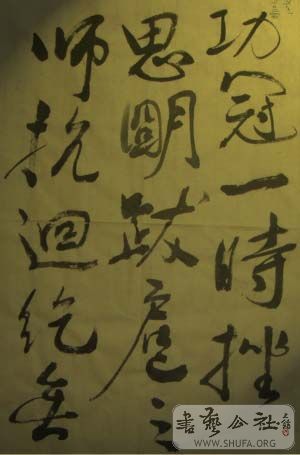 功冠一時挫
思明跋扈之
師抗迴紇無
書藝公社
WWW.SHUFA.ORG